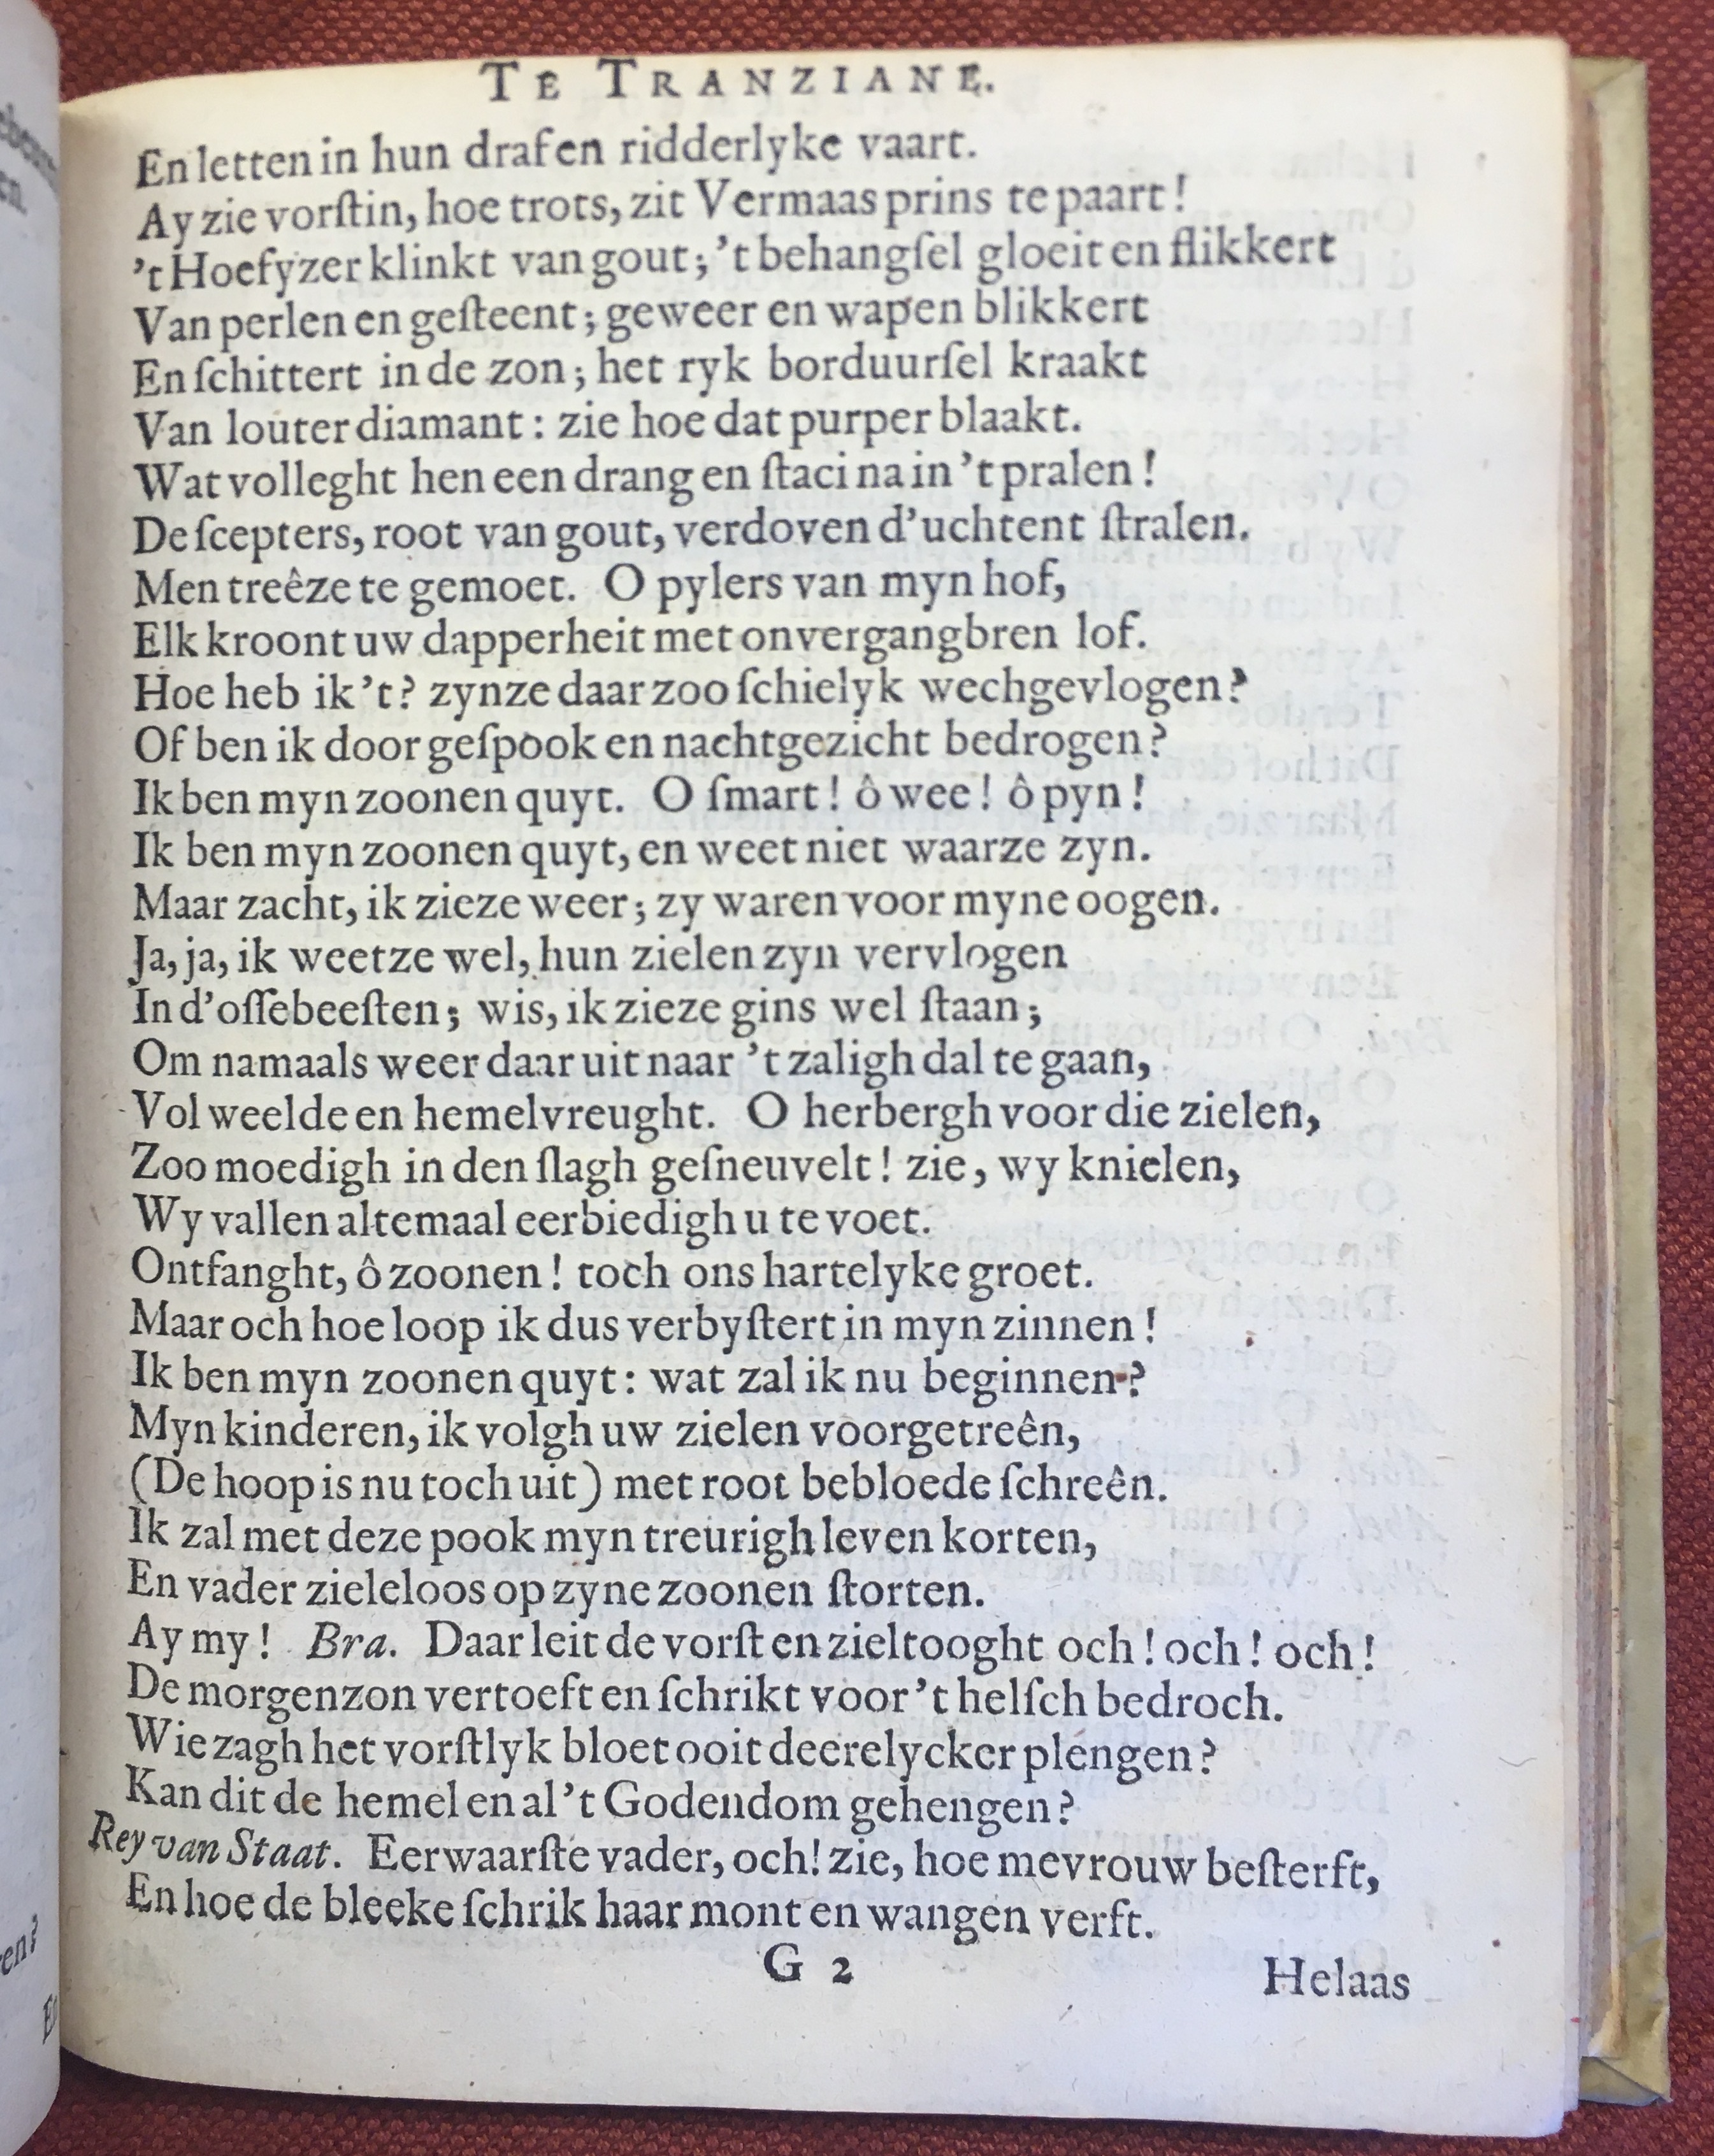 TE TRANZIANE.
En letten in hun draf en ridderlyke vaart.
Ay zie vorſtin, hoe trots, zit Vermaas prins te paart!
't Hoefyzer klinkt van gout; 't behangſel gloeit en flikkert
Van perlen en geſteent; geweer en wapen blikkert
En ſchittert in de zon; het ryk borduurſel kraakt
Van louter diamant: zie hoe dat purper blaakt.
Wat volleght hen een drang en ſtaci na in 't pralen!
De ſcepters, root van gout, verdoven d'uchtent ſtralen.
Men treêze te gemoet. O pylers van myn hof,
Elk kroont uw dapperheit met onvergangbren lof.
Hoe heb ik 't? zynze daar zoo ſchielyk wechgevlogen?
Of ben ik door geſpook en nachtgezicht bedrogen?
Ik ben myn zoonen quyt. O ſmart! ô wee! ô pyn!
Ik ben myn zoonen quyt, en weet niet waarze zyn.
Maar zacht, ik zieze weer; zy waren voor myne oogen.
Ja, ja, ik weetze wel, hun zielen zyn vervlogen
In d'oſſebeeſten; wis, ik zieze gins wel ſtaan;
Om namaals weer daar uit naar 't zaligh dal te gaan,
Vol weelde en hemelvreught. O herbergh voor die zielen,
Zoo moedigh in den ſlagh geſneuvelt! zie, wy knielen,
Wy vallen altemaal eerbiedigh u te voet.
Ontfanght, ô zoonen! toch ons hartelyke groet.
Maar och hoe loop ik dus verbyſtert in myn zinnen!
Ik ben myn zoonen quyt: wat zal ik nu beginnen?
Myn kinderen, ik volgh uw zielen voorgetreên,
(De hoop is nu toch uit) met root bebloede ſchreên.
Ik zal met deze pook myn treurigh leven korten,
En vader zieleloos op zyne zoonen ſtorten.
Ay my! Bra. Daar leit de vorſt en zieltooght och! och! och!
De morgenzon vertoeft en ſchrikt voor 't helſch bedroch.
Wie zagh het vorſtlyk bloet ooit deerelycker plengen?
Kan dit de hemel en al 't Godendom gehengen?
Rey van Staat. Eerwaarſte vader, och! zie, hoe mevrouw beſterft,
En hoe de bleeke ſchrik haar mont en wangen verft.
G 2
Helaas